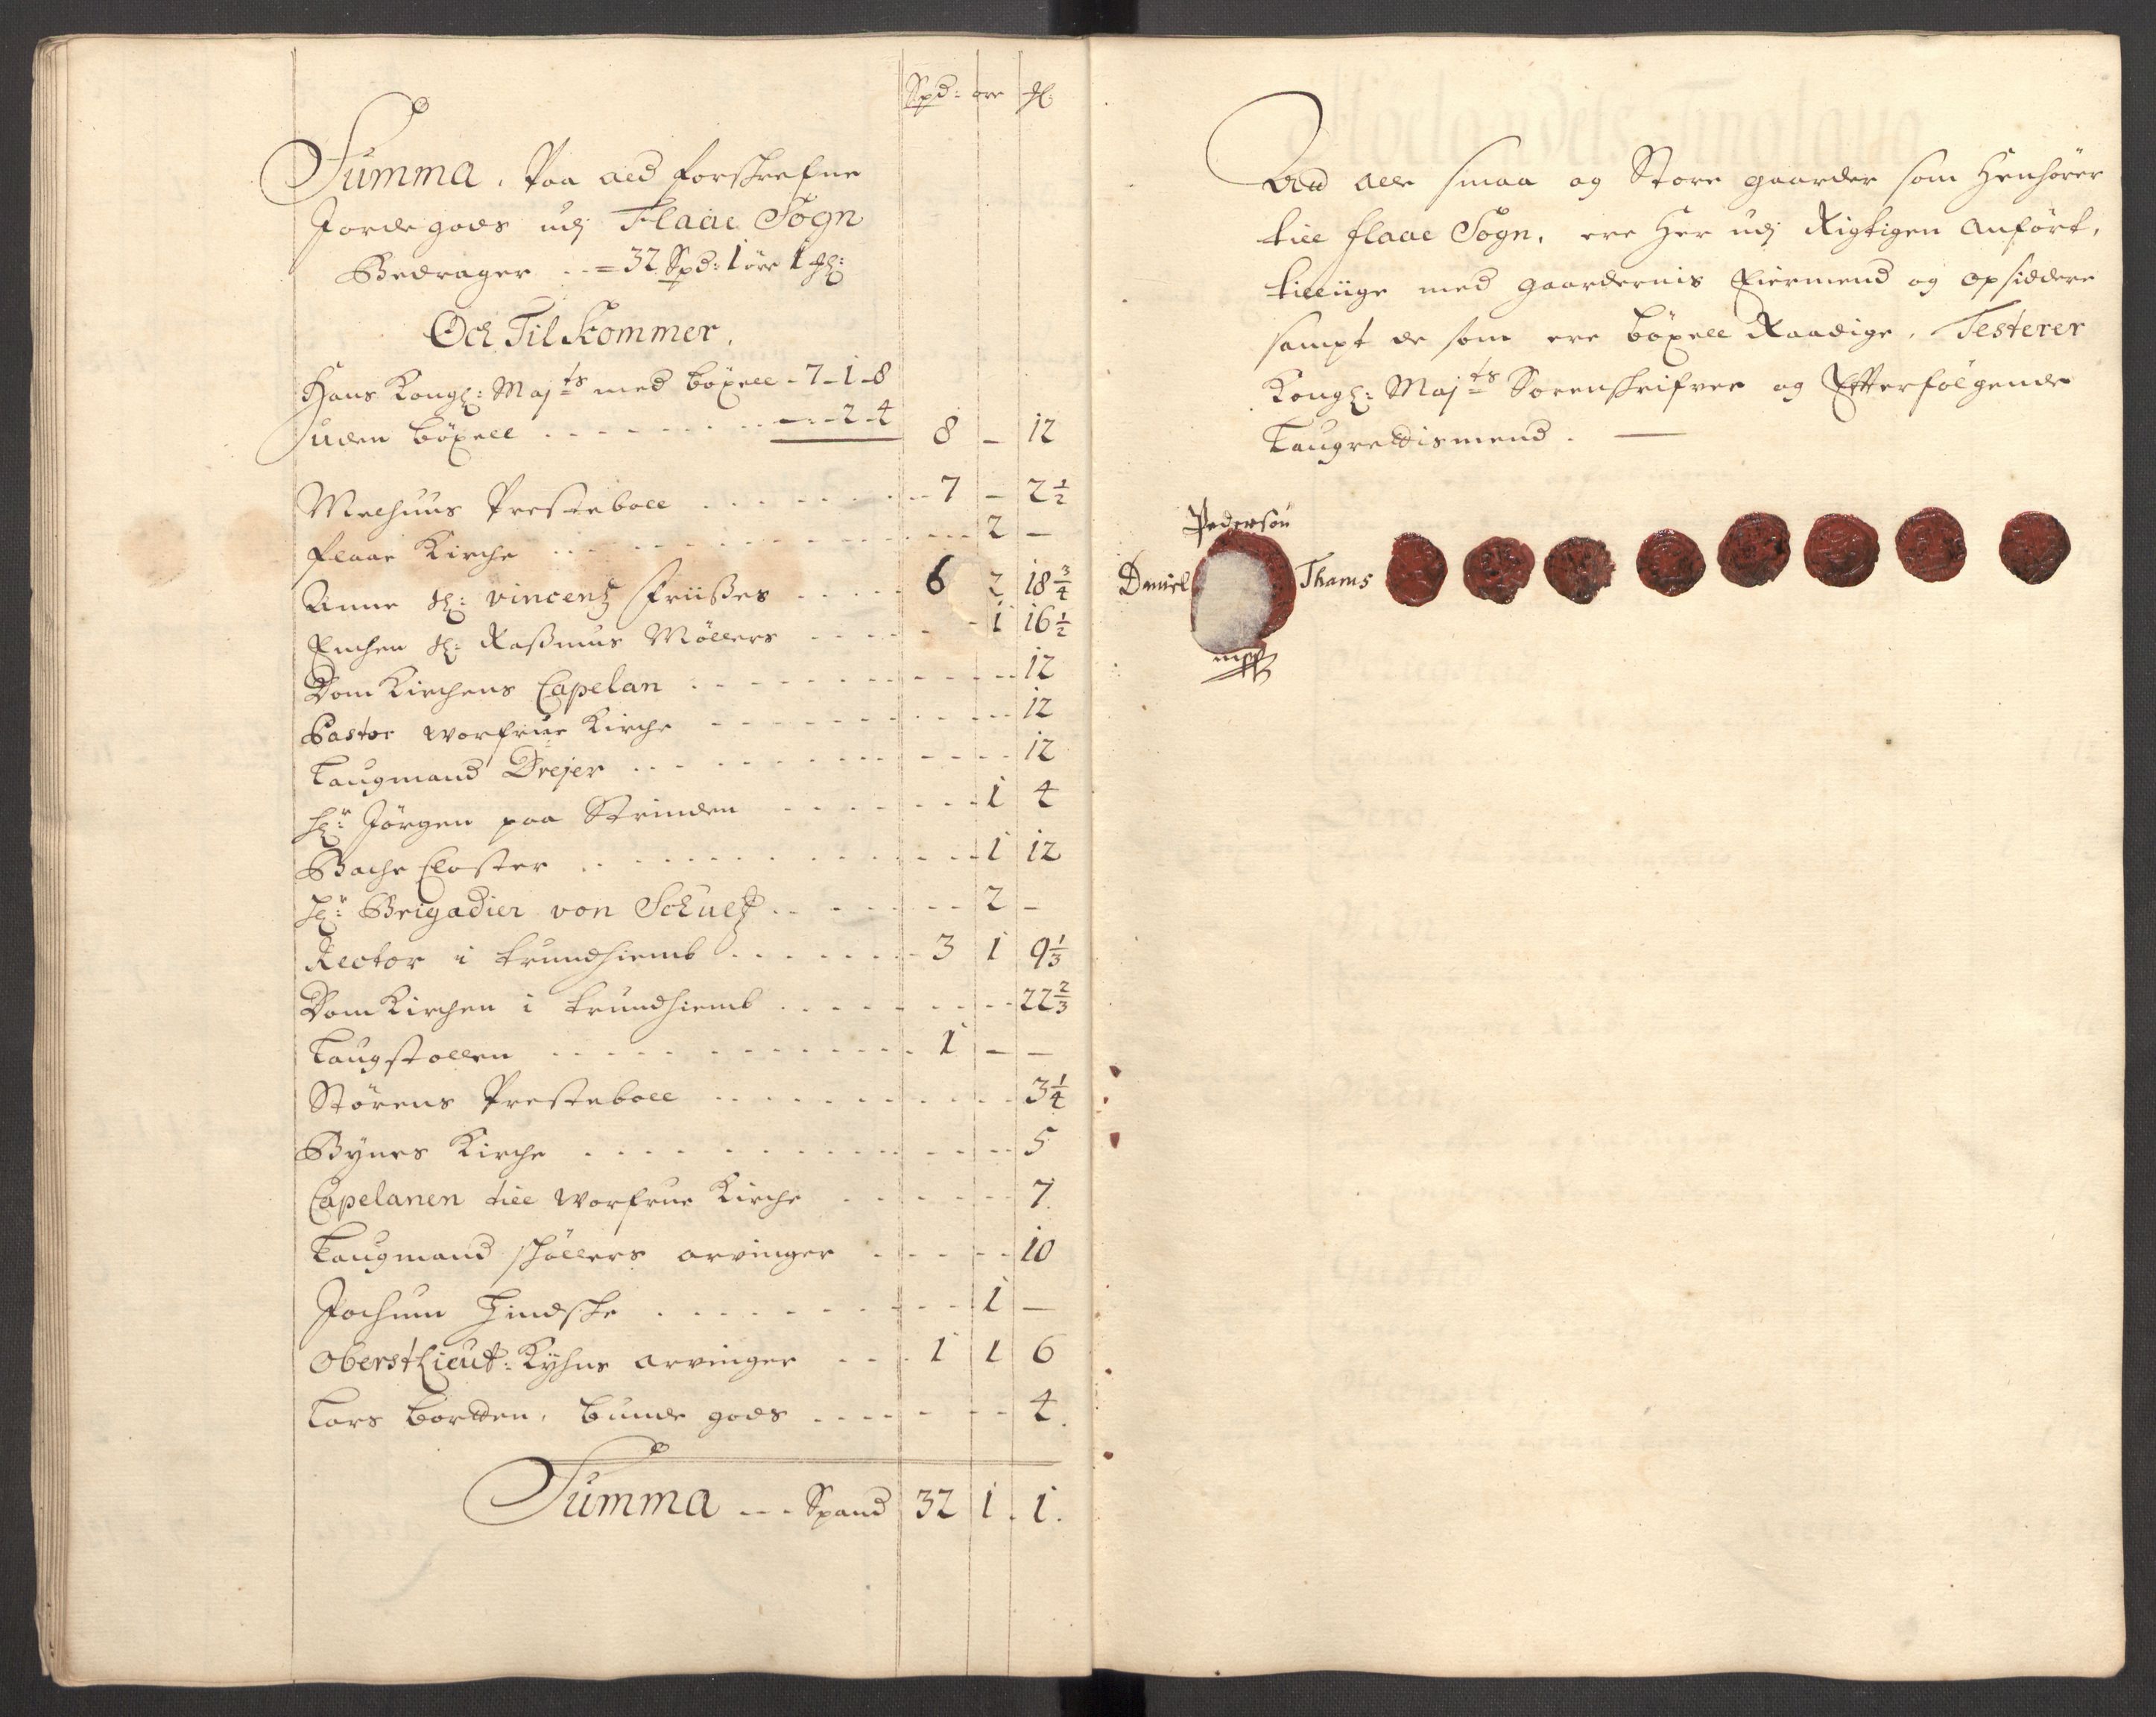 Spd: öre ꝳl:
Summa, Paa ald forskrefne
Jordegods udj Flaae Sogn
Bedrager - - = 32 Spd: 1 öre 1 ꝳl:
Och Tilkommer.
Hans Kongl: Majts med böxell - 7 - 1 - 8
uden böxell - - - 2 - 4 8 - 12
Melhuus Presteboll 7 - 2 1/2
flaae Kirche 2 -
Anne Sl: Vincentz friißes 6 2 18 3/4
Enchen Sl: Raßmus Möllers 1 16 1/2
Dom Kirchens Capelan 12
Pastor Worfrue Kirche 12
Laugmand Drejer 12
Hr: Jörgen paa Strinden 1 4
Bache Closter 1 12
Hr: Brigadier von Schultz 2 -
Rector i trundhiemb 3 1 9 1/3
Dom Kirchen i trundhiemb 22 2/3
Laugstollen 1 - -
Störens Presteboll 3 1/4
Bynes Kirche 5
Capelanen till Worfrue Kirche 7
Laugmand schöllers arvinger 10
Jochum Hindske 1 -
Oberst Lieut: Kyhns arvinger 1 1 6
Lars bortten, bunde gods 4.
Summa - - - Spand 32 1. 1.
alle smaa og Store gaarder som Henhörer
till flaae Sogn, ere Her udj Rigtigen Anfört,
tilliige med gaardernis Eiermend og opsiddere
sampt de som ere böxell Raadige, Testerer
Kongl: Majts Sorenskrifver og Efterfölgende
Laugrettismend.
Pedersön
Daniel Thams
mpp